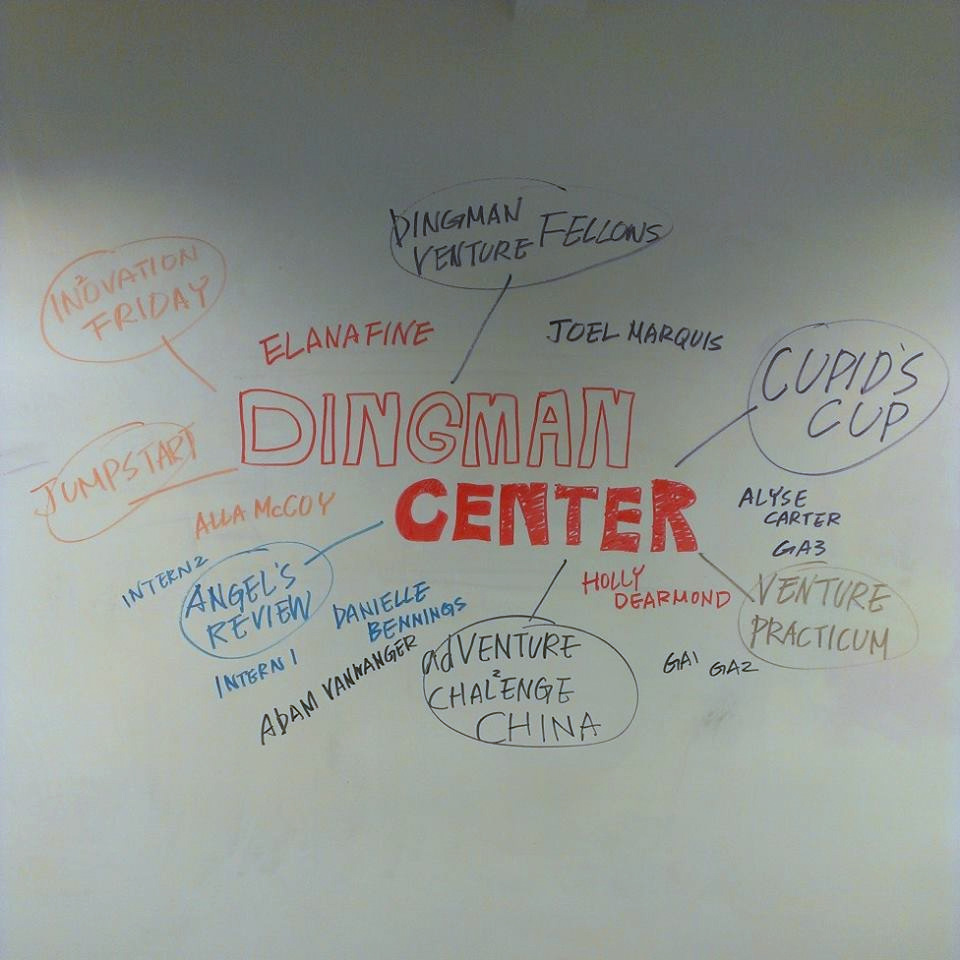 DINGMAN
VENTURE FELLOWS
IN²OVATION
FRIDAY
ELANA FINE
JOEL MARQUIS
CUPID'S
CUP
DINGMAN
CENTER
JUMPSTART
ALLA McCOY
ALYSE
CARTER
GA3
INTERN2
ANGEL'S
REVIEW
INTERN1
DANIELLE
BENNINGS
ADAM VANWANGER
HOLLY
DEARMOND
VENTURE
PRACTICUM
adVENTURE
CHAL²ENGE
CHINA
GA1 GA2